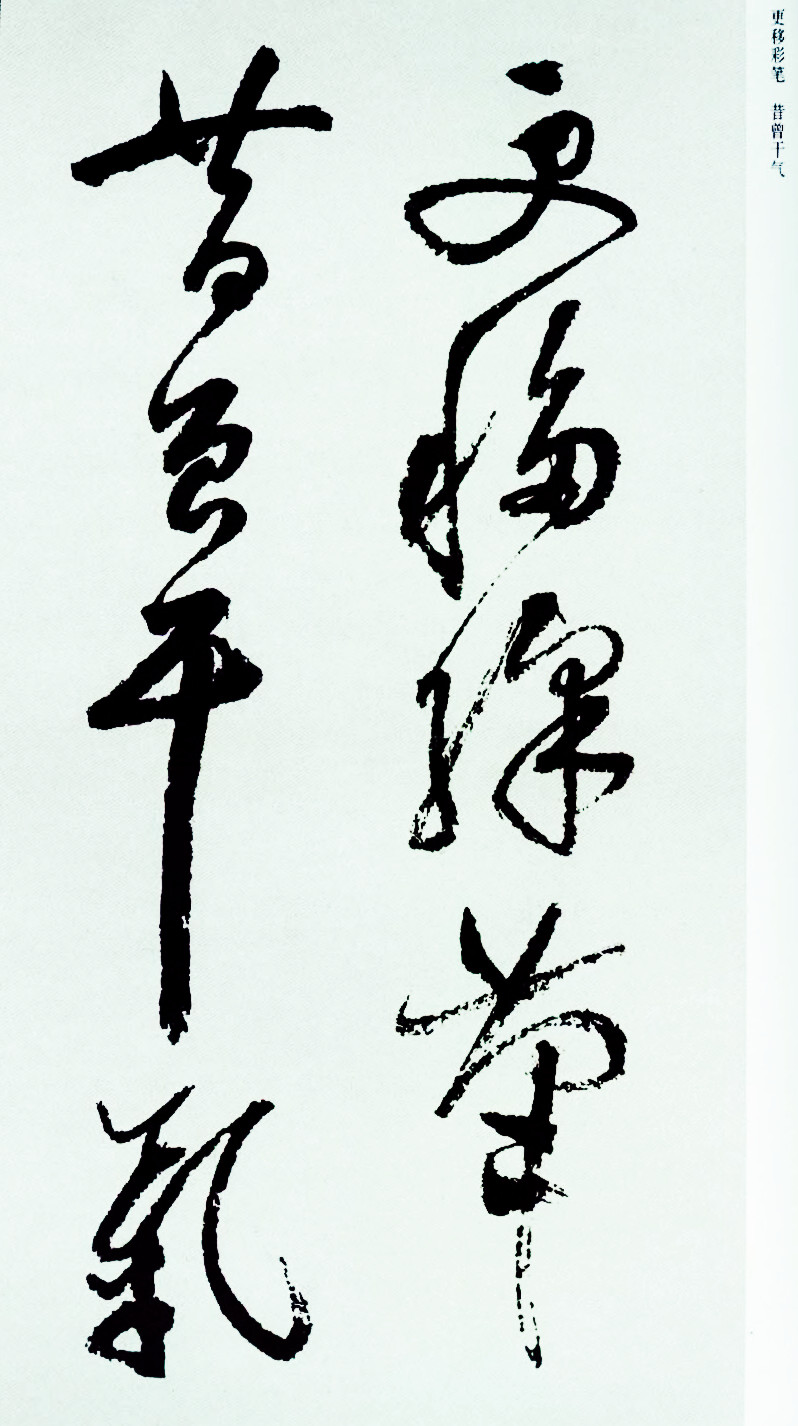 更移彩笔 昔曾干气
更移綵筆
昔曾干氣